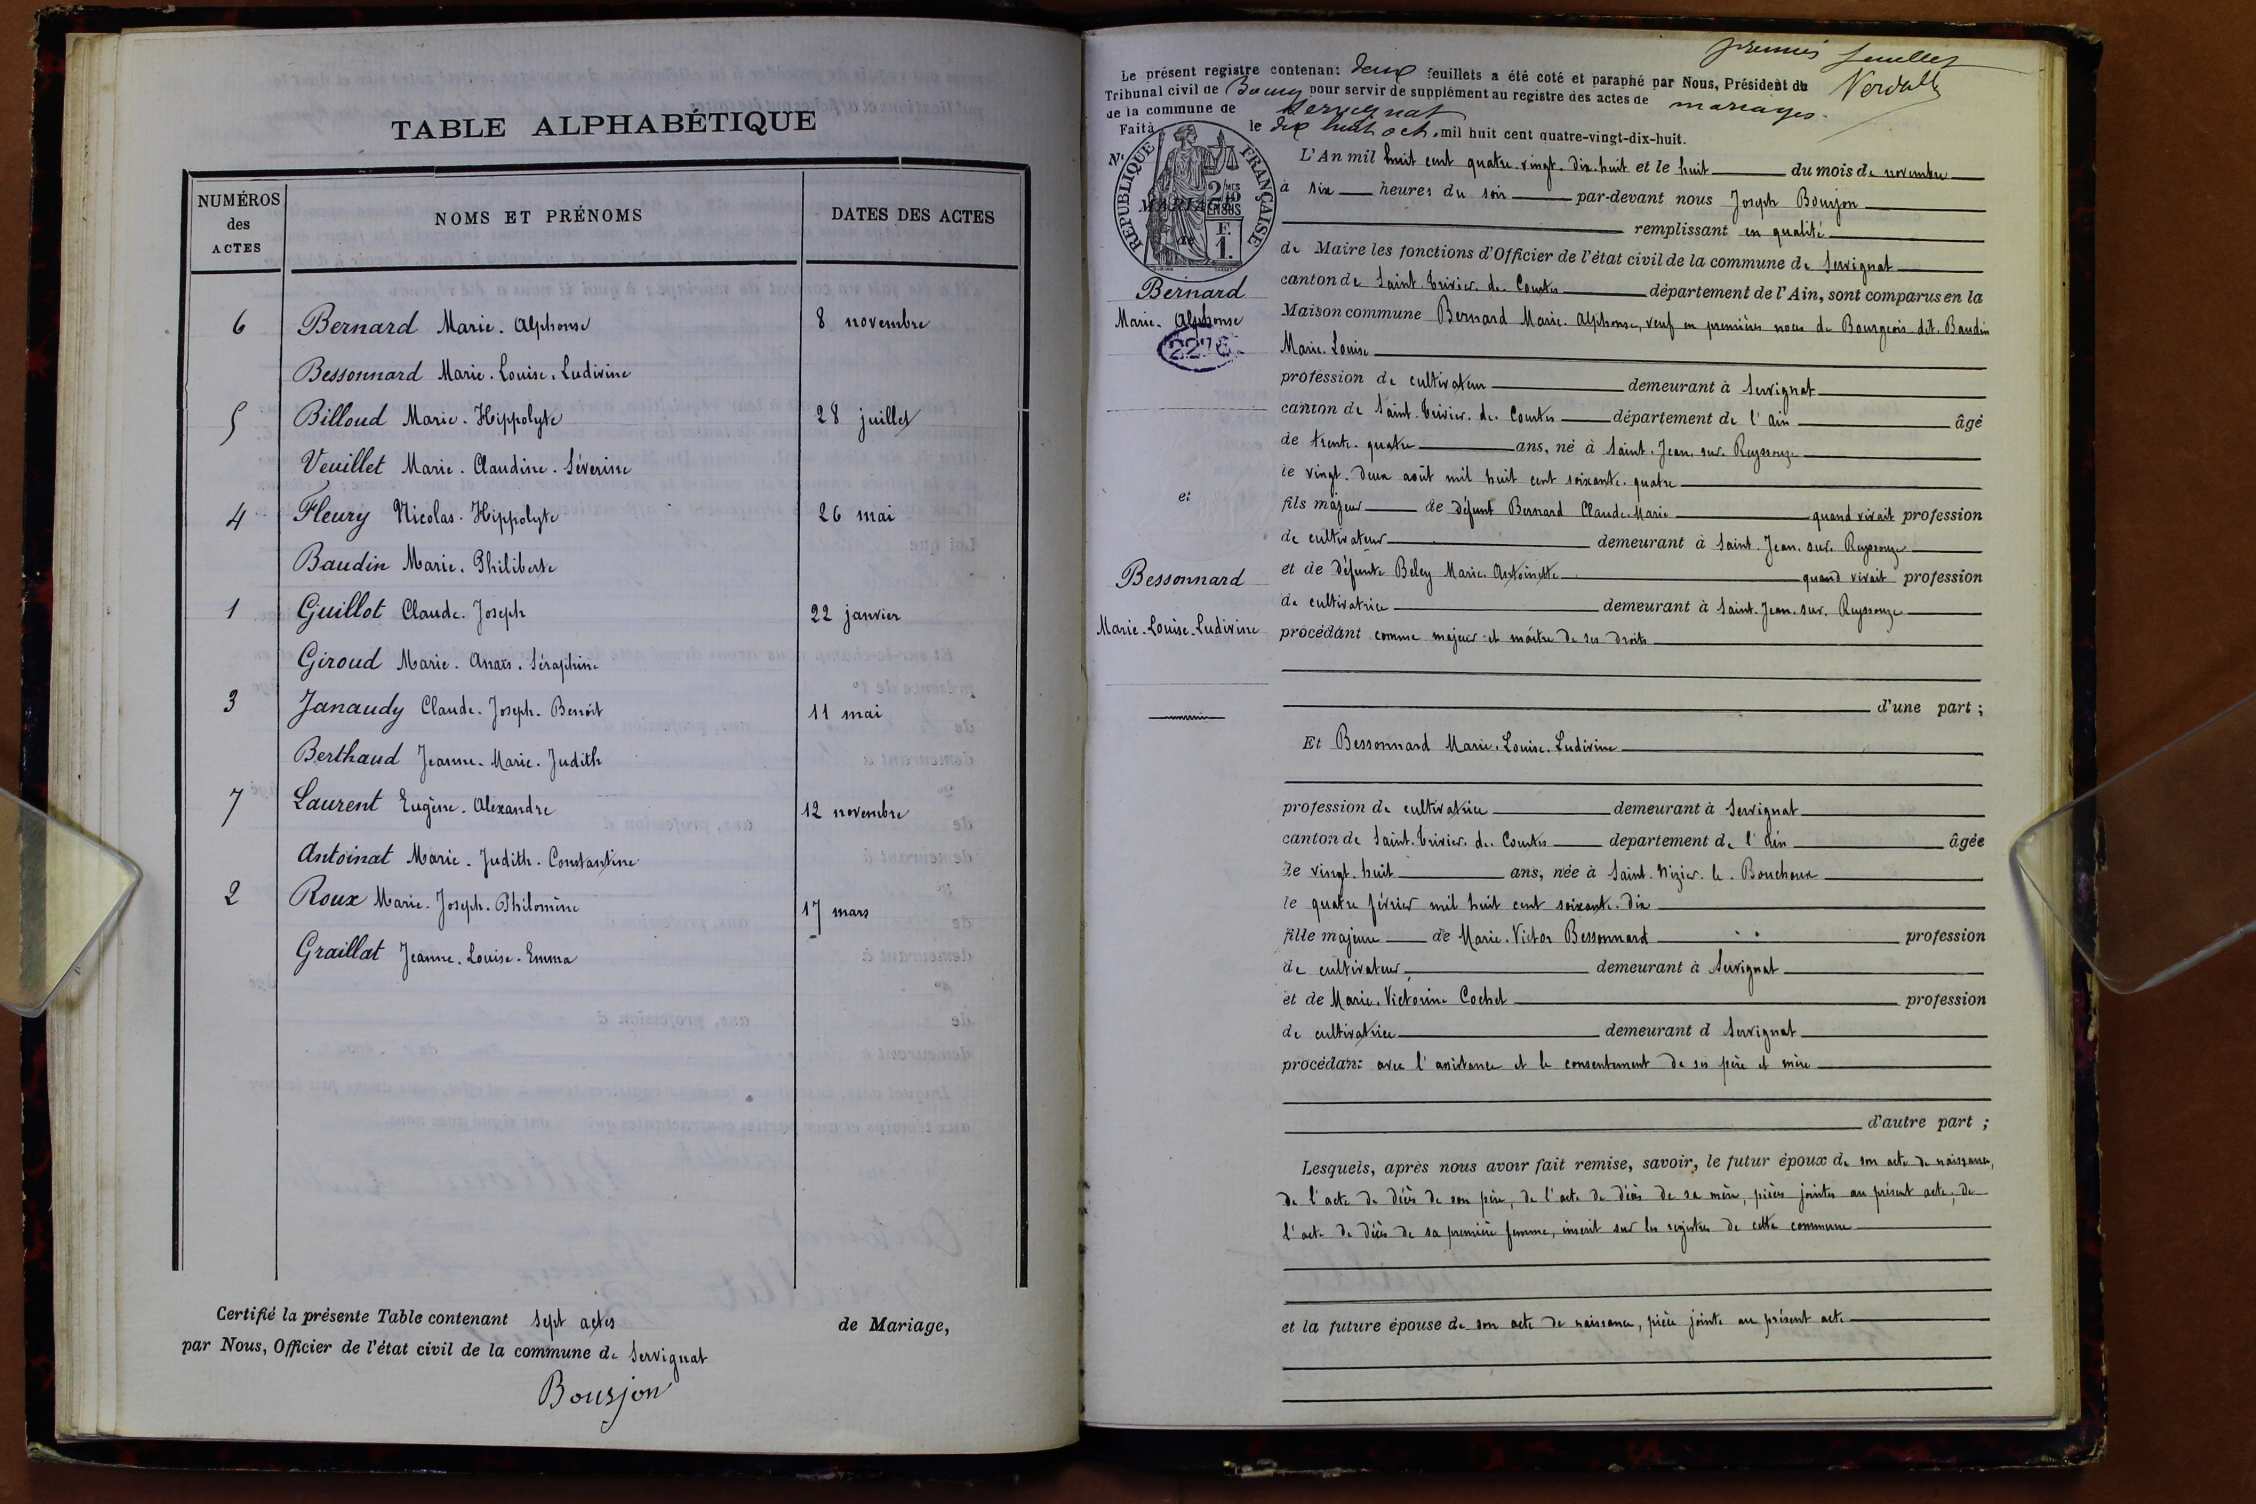 TABLE ALPHABÉTIQUE
NUMÉROS des ACTES
NOMS ET PRÉNOMS
DATES DES ACTES
6 Bernard Marie. Alphonse 8 novembre
Bessonnard Marie. Louise. Ludivine
5 Billoud Marie. Hippolyte 28 juillet
Veuillet Marie. Claudine. Séverine
4 Fleury Nicolas. Hippolyte 26 mai
Baudin Marie. Philiberte
1 Guillot Claude. Joseph 22 janvier
Giroud Marie. Anaïs. Séraphine
3 Janaudy Claude. Joseph. Benoit 11 mai
Berthaud Jeanne. Marie. Judith
7 Laurent Eugène. Alexandre 12 novembre
Antoinat Marie. Judith. Constantine
2 Roux Marie. Joseph. Philomène 17 mars
Graillat Jeanne. Louise. Emma
Certifié la présente Table contenant sept actes de Mariage,
par Nous, Officier de l'état civil de la commune de Servignat
Bourjon
premier feuillet
Le présent registre contenant deux feuillets a été coté et paraphé par Nous, Président du
Tribunal civil de Bourg pour servir de supplément au registre des actes de mariages.
de la commune de Servignat
Fait à le dix huit oct. mil huit cent quatre-vingt-dix-huit.
RÉPUBLIQUE FRANÇAISE
Nº
MARIAGE
de
Bernard
Marie. Alphonse
et
Bessonnard
Marie. Louise. Ludivine
L'An mil huit cent quatre. vingt. dix. huit et le huit du mois de novembre
à six heures du soir par-devant nous Joseph Bourjon
remplissant en qualité
de Maire les fonctions d'Officier de l'état civil de la commune de Servignat
canton de Saint. Trivier. de. Courtes département de l'Ain, sont comparus en la
Maison commune Bernard Marie. Alphonse, veuf en premières noces de Bourgeois dit. Baudin
Marie. Louise
profession de cultivateur demeurant à Servignat
canton de Saint. Trivier. de. Courtes département de l'Ain âgé
de trente. quatre ans, né à Saint. Jean. sur. Reyssouze
le vingt. deux août mil huit cent soixante. quatre
fils majeur de défunt Bernard Claude. Marie quand vivait profession
de cultivateur demeurant à Saint. Jean. sur. Reyssouze
et de défunte Beley Marie. Antoinette quand vivait profession
de cultivatrice demeurant à Saint. Jean. sur. Reyssouze
procédant comme majeur et maître de ses droits
d'une part ;
Et Bessonnard Marie. Louise. Ludivine
profession de cultivatrice demeurant à Servignat
canton de Saint. Trivier. de. Courtes département de l'Ain âgée
de vingt. huit ans, née à Saint. Nizier. le. Bouchoux
le quatre février mil huit cent soixante. dix
fille majeure de Marie. Victor Bessonnard profession
de cultivateur, demeurant à Servignat
et de Marie. Victorine Cochet profession
de cultivatrice demeurant à Servignat
procédant avec l'assistance et le consentement de ses père et mère
d'autre part ;
Lesquels, après nous avoir fait remise, savoir, le futur époux de son acte de naissance,
de l'acte de décès de son père, de l'acte de décès de sa mère, pièces jointes au présent acte, de
l'acte de décès de sa première femme, inscrit sur les registres de cette commune
et la future épouse de son acte de naissance, pièce jointe au présent acte